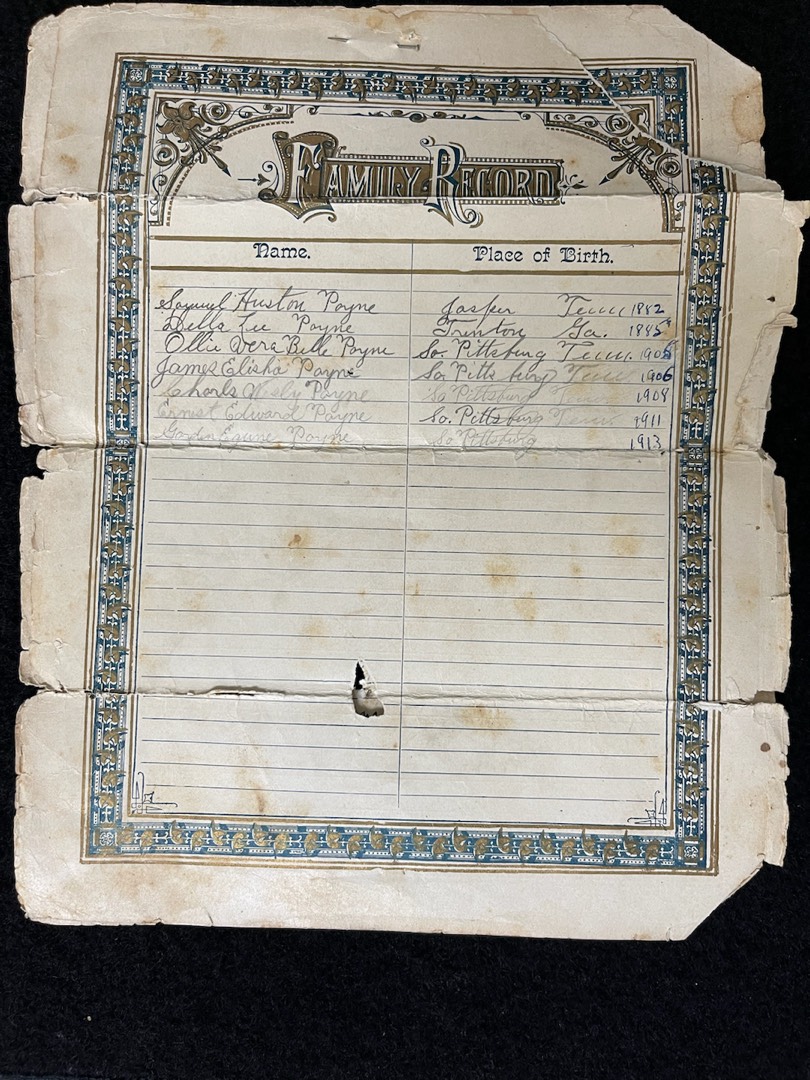 Family Record
Name. Place of Birth.
Samuel Huston Payne Jasper Tenn 1882
Della Lee Payne Trenton Ga. 1885
Ollie Vera Belle Payne So. Pittsburg Tenn. 1905
James Elisha Payne So. Pittsburg Tenn 1906
Charls Wesly Payne So Pittsburg Tenn 1908
Ernest Edward Payne So. Pittsburg Tenn. 1911
Payne So Pittsburg 1913